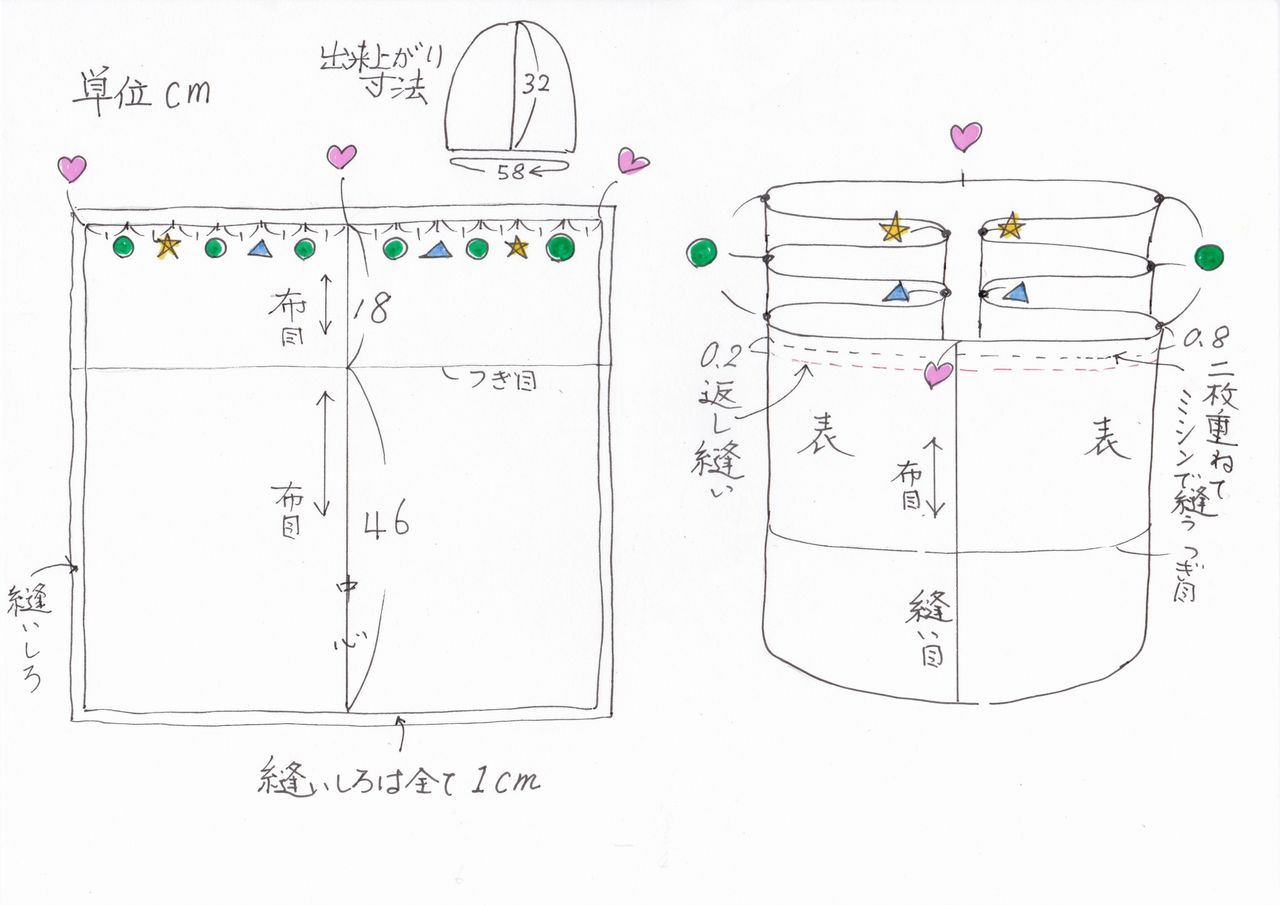 単位cm
出来上がり
寸法
32
58
布目
18
つぎ目
布目
46
中心
縫いしろ
縫いしろは全て1cm
0.2
返し縫い
0.8
二枚重ねて
ミシンで縫う
表
表
布目
つぎ目
縫い目